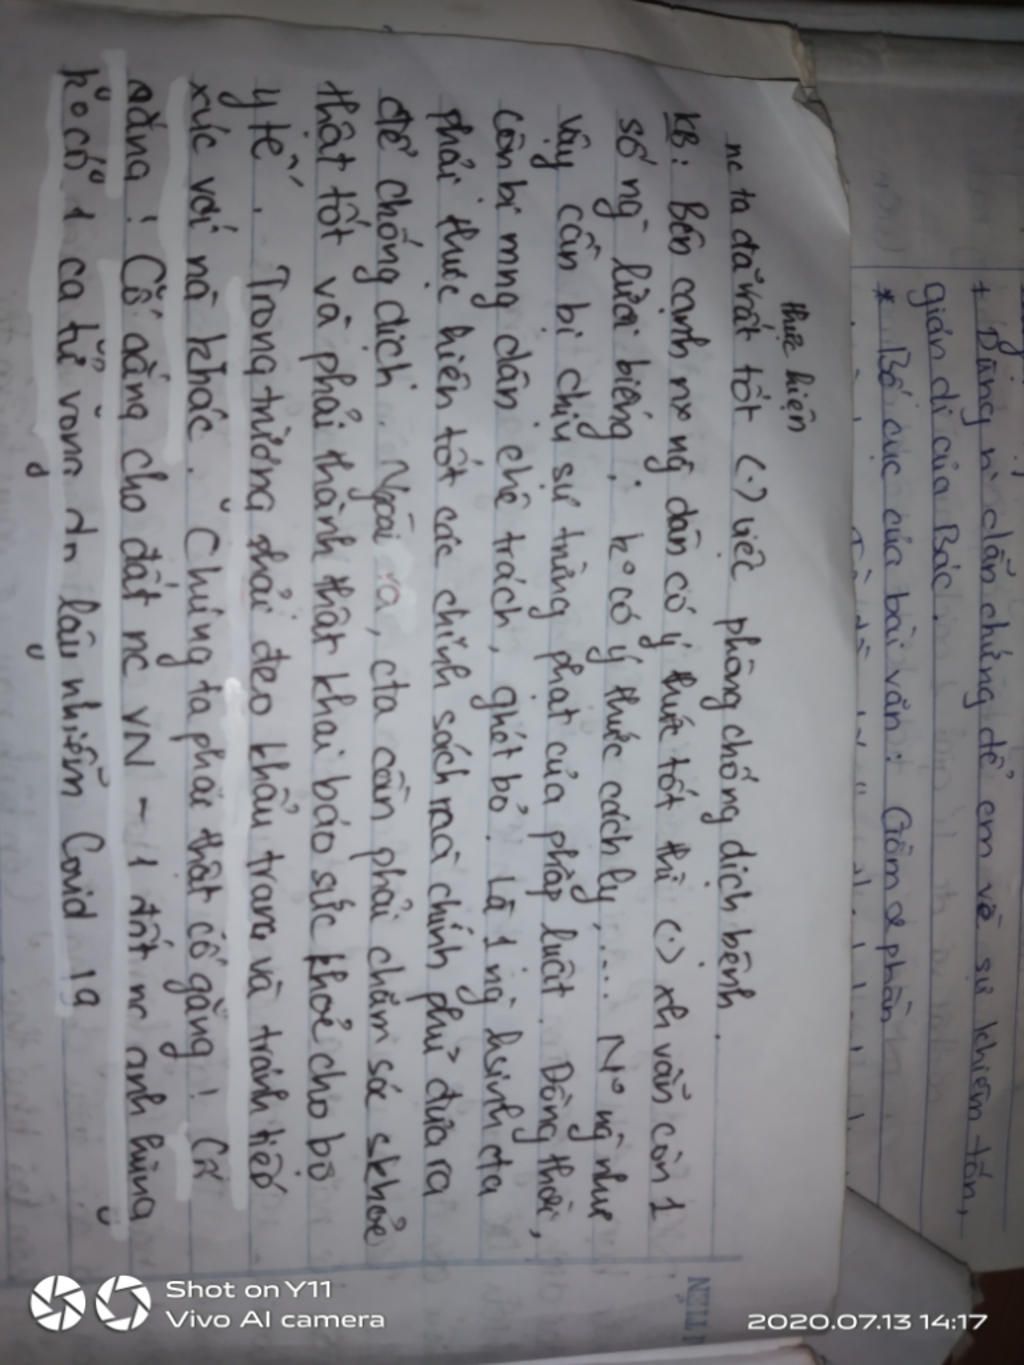 + Dùng n~ dẫn chứng để cm về sự khiêm tốn,
giản dị của Bác.
* Bố cục của bài văn: Gồm 2 phần
thực hiện
nc ta đã rất tốt (.) việc phòng chống dịch bệnh.
KB: Bên cạnh nx ng dân có ý thức tốt thì (.) xh vẫn còn 1
số ng` lười biếng; ko có ý thức cách ly,... No ng như
vậy cần bị chịu sự trừng phạt của pháp luật. Đồng thời,
còn bị mng dân chê trách, ghét bỏ. Là 1 ng` hsinh cta
phải thực hiện tốt các chính sách mà chính phủ đưa ra
để chống dịch. Ngoài ra, cta cần phải chăm sóc skhỏe
thật tốt và phải thành thật khai báo sức khỏe cho bộ
y tế. Trong trường phải đeo khẩu trang và tránh tiếp
xúc với nà khác. Chúng ta phải thật cố gắng! Cố
gắng! Cố gắng cho đất nc VN - 1 đất nc anh hùng
ko có 1 ca tử vong dn lây nhiễm Covid 19
Shot on Y11
Vivo AI camera
2020.07.13 14:17